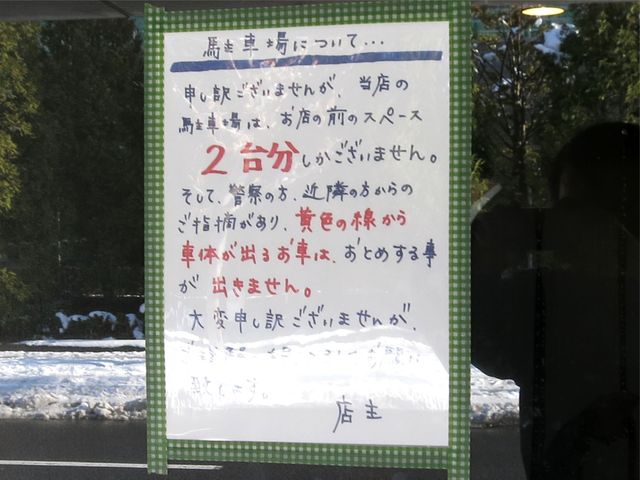 駐車場について…
申し訳ございませんが、当店の
駐車場は、お店の前のスペース
2台分しかございません。
そして、警察の方、近隣の方からの
ご指摘があり、黄色の線から
車体が出るお車は、おとめする事
が出きません。
大変申し訳ございませんが、
ご
致します。
店主